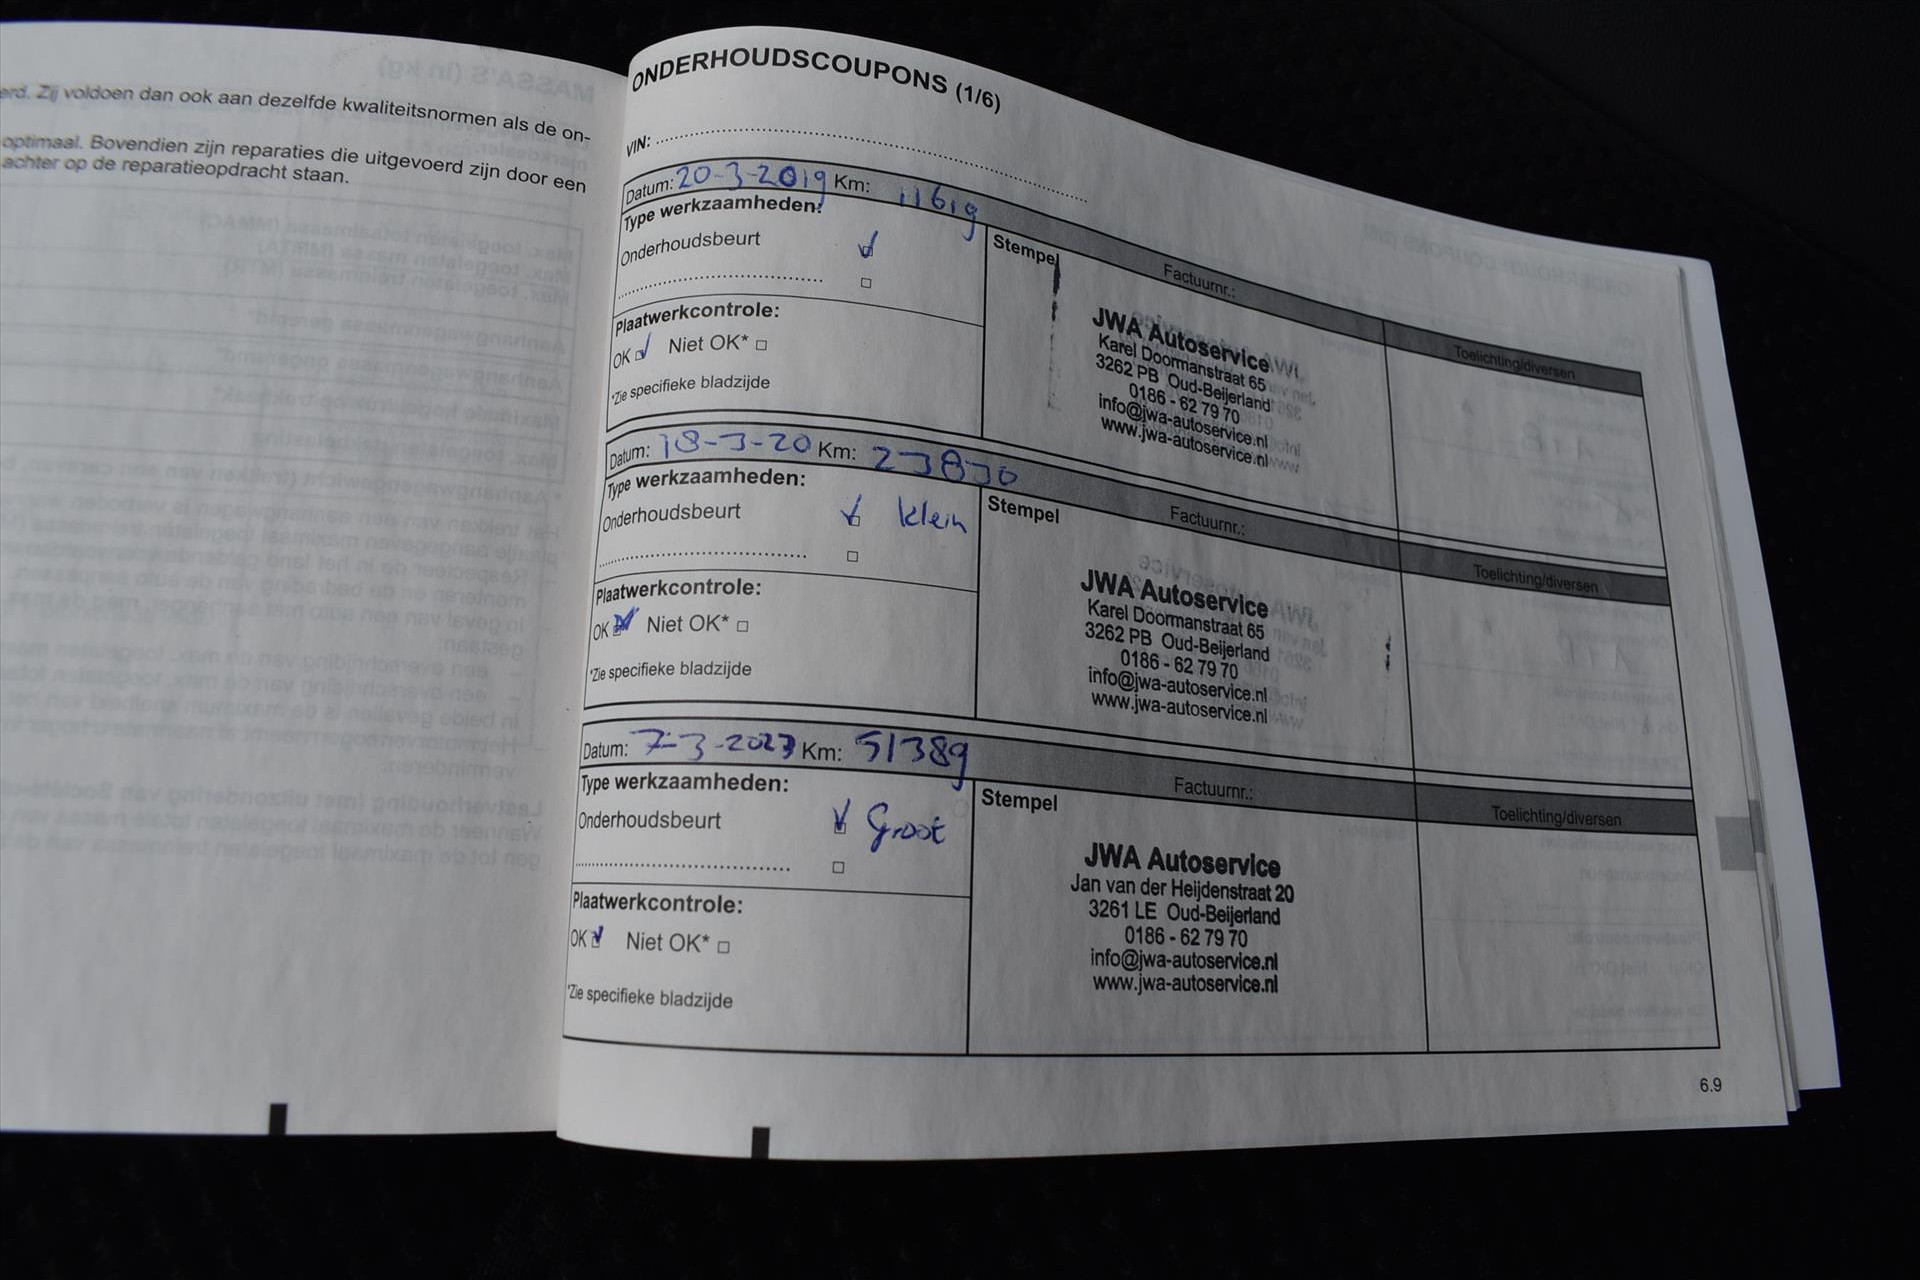 erd. Zij voldoen dan ook aan dezelfde kwaliteitsnormen als de on-
optimaal. Bovendien zijn reparaties die uitgevoerd zijn door een
achter op de reparatieopdracht staan.
ONDERHOUDSCOUPONS (1/6)
VIN:
Datum: 20-3-2019 Km: 11619
Type werkzaamheden:
Onderhoudsbeurt
Plaatwerkcontrole:
OK Niet OK*
*Zie specifieke bladzijde
Stempel
Factuurnr.:
Toelichting/diversen
JWA Autoservice
Karel Doormanstraat 65
3262 PB Oud-Beijerland
0186 - 62 79 70
info@jwa-autoservice.nl
www.jwa-autoservice.nl
Datum: 18-3-20 Km: 23830
Type werkzaamheden:
Onderhoudsbeurt klein
Plaatwerkcontrole:
OK Niet OK*
*Zie specifieke bladzijde
Stempel
Factuurnr.:
Toelichting/diversen
JWA Autoservice
Karel Doormanstraat 65
3262 PB Oud-Beijerland
0186 - 62 79 70
info@jwa-autoservice.nl
www.jwa-autoservice.nl
Datum: 7-3-2023 Km: 51389
Type werkzaamheden:
Onderhoudsbeurt Groot
Plaatwerkcontrole:
OK Niet OK*
*Zie specifieke bladzijde
Stempel
Factuurnr.:
Toelichting/diversen
JWA Autoservice
Jan van der Heijdenstraat 20
3261 LE Oud-Beijerland
0186 - 62 79 70
info@jwa-autoservice.nl
www.jwa-autoservice.nl
6.9